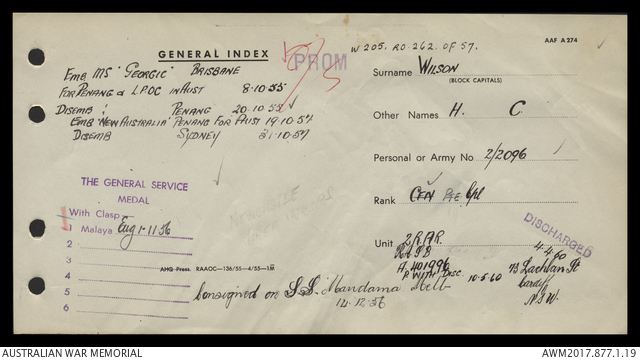 GENERAL INDEX
PROM
W 205. RO. 262. OF 57.
AAF A 274
EMB MS "GEORGIC" BRISBANE
FOR PENANG & LPOC IN AUST 8.10.55
DISEMB : PENANG 20.10.55
EMB "NEW AUSTRALIA" PENANG FOR AUST 19.10.57
DISEMB SYDNEY 31.10.57
Surname WILSON
(BLOCK CAPITALS)
Other Names H. C
Personal or Army No 2/2096
Rank CFN PTE Cpl
Unit 2 RAR
DISCHARGED
4.4.60
A 401996
P WITH DISC. 10.5.60
73 Lachlan St
Cardiff
N.S.W.
THE GENERAL SERVICE
MEDAL
With Clasp
1 Malaya Eng 1.11.56
2
3
4
5
6
AHQ Press. RAAOC—136/55—4/55—1M
Consigned on S.S. Mandama Melb
14.12.56
AUSTRALIAN WAR MEMORIAL
AWM2017.877.1.19